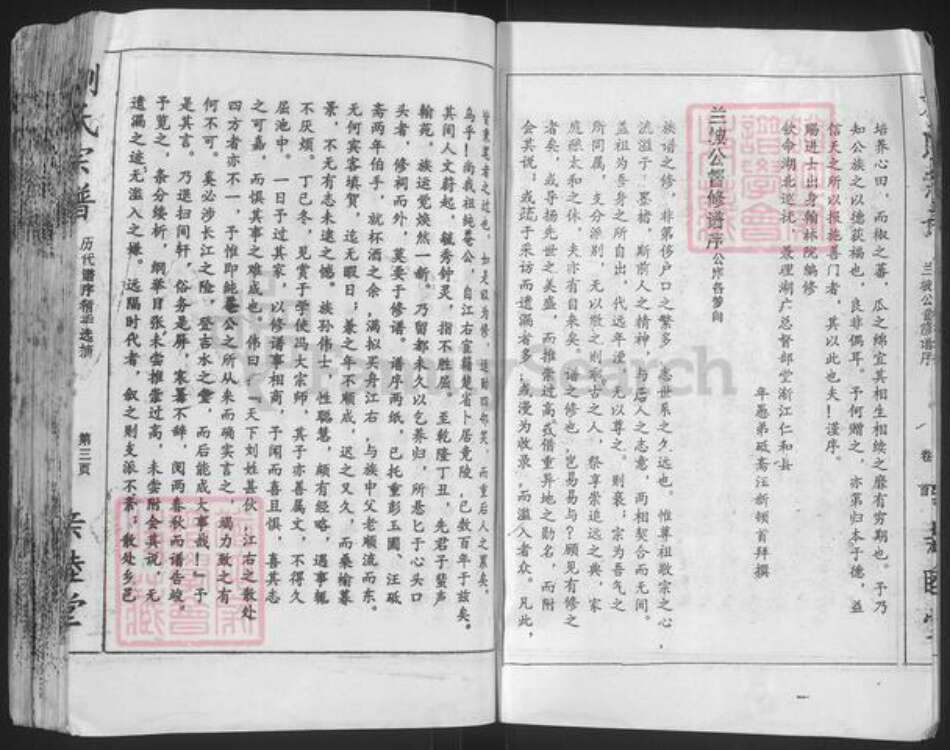 培养心田，而椒之蕃，瓜之绵宜其相生相续之靡有穷期也。予乃
知公族之以德获福也，良非偶耳。予何赠之，亦第归本于德，益
信天之所以报施善门者，其以此也夫！谨序。
赐进士出身翰林院编修
钦命湖北巡抚 兼理湖广总督部堂浙江仁和县
年愚弟砥斋汪新顿首拜撰
兰坡公督修谱序
族谱之修，非第侈户口之繁多，志世系之久远也。惟尊祖敬宗之心，
流溢于 墨楮，斯前人之精神，与后人之志意，两相契合而无间。
盖祖为吾身之所自出，代远年湮，无以尊之，则亵；宗为吾气之
所同属，支分派别，无以敬之则 古之人，祭享崇追远之典，家
庭 太和之休，夫亦有自来矣。 谱之修也，岂易易与？顾见有修之
者矣，或导扬先世之美盛，而推崇过高或借重异地之勋名，而附
会其说；或 于采访而遗漏者多；或漫为收录，而滥入者众。凡此，
皆 者之过也。如是以为修， 而重后人之累矣。
乌乎！尚我祖纯菴公，自江右宦籍楚省卜居竟陵，已数百年于兹矣。
其间人文蔚起。毓秀钟灵，指不胜屈。至乾隆丁丑，先君子蜚声
翰苑。族运觉焕然一新。乃留都未久以乞养归，所眷匕于心头口
头者，修祠而外，莫要于修谱。谱序两纸，已托重彭玉圃、汪砥
斋两年伯手，就杯酒之余，满拟买舟江右，与族中父老顺流而东。
无何宾客填贺，迄无暇日；兼之年不顺成，迟之又久，而桑榆暮
景，不无有志未逮之憾。族孙伟士，性聪慧，颇有经略，遇事辄
不厌烦。丁巳冬，见赏于学使冯大宗师，其子亦善属文，不得久
屈池中。一日予过其家，以修谱事相商，予闻而喜且惧，喜其志
之可嘉，而惧其事之难成也。伟曰：“天下刘姓甚伙，江右之散处
四方者亦不一，予惟即纯菴公之所从来而确实言之，竭力致之有
何不可。奚必涉长江之险，登吉水之堂，而后能成大事哉！”于
是其言。乃遥扫间轩，俗务是屏，寒暑不辞，阅两春秋而谱告竣，
予览之，条分缕析，纲举目张未尝推崇过高，未尝附会其说，无
遗漏之迹，无滥入之嫌。远隔时代者，叙之则支派不紊；散处乡邑
氏宗谱
历代谱序精华选摘
第三页
亲睦堂
兰坡公督修谱序
卷
首